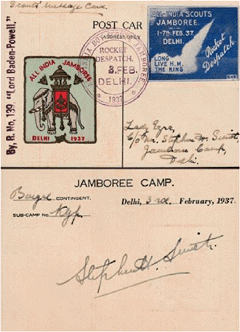 Scouts Message Card.
POST CARD
By, R. No, 139 "Lord Baden-Powell."
ALL INDIA JAMBOREE
DELHI 1937
ROCKET
DESPATCH.
3. FEB.
DELHI.
1937
ALL INDIA SCOUTS
JAMBOREE
1-7th FEB. 37
DELHI.
LONG
LIVE H.M.
THE KING
Rocket
Despatch.
C/o Mr. Stephen H. Smith
Jamboree Camp,
Delhi.
JAMBOREE CAMP.
Bengal CONTINGENT.
Delhi, 3rd February, 1937.
SUB-CAMP No.
Stephen H. Smith.